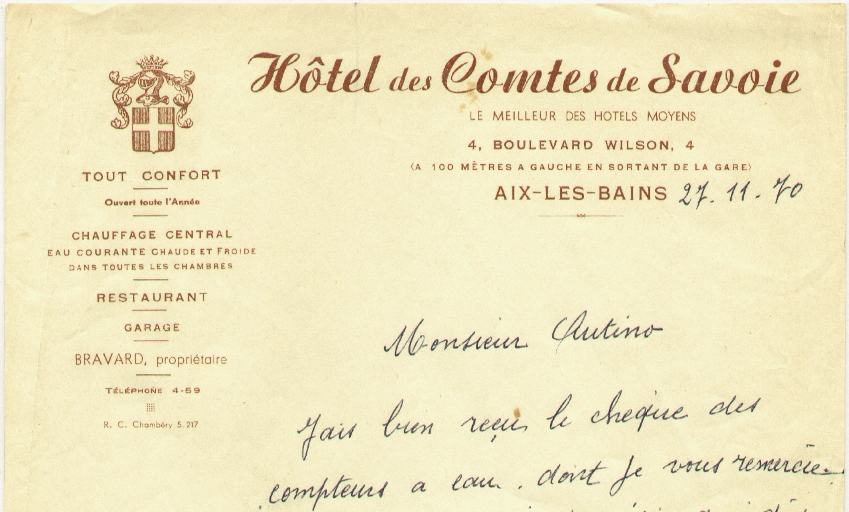 Hôtel des Comtes de Savoie
LE MEILLEUR DES HOTELS MOYENS
4, BOULEVARD WILSON, 4
(A 100 MÈTRES A GAUCHE EN SORTANT DE LA GARE)
AIX-LES-BAINS 27.11.70
TOUT CONFORT
Ouvert toute l'Année
CHAUFFAGE CENTRAL
EAU COURANTE CHAUDE ET FROIDE
DANS TOUTES LES CHAMBRES
RESTAURANT
GARAGE
BRAVARD, propriétaire
TÉLÉPHONE 4-59
R. C. Chambéry 5.217
Monsieur Autino
Jais bien reçu le chèque des
compteurs a eau. dont je vous remercie.